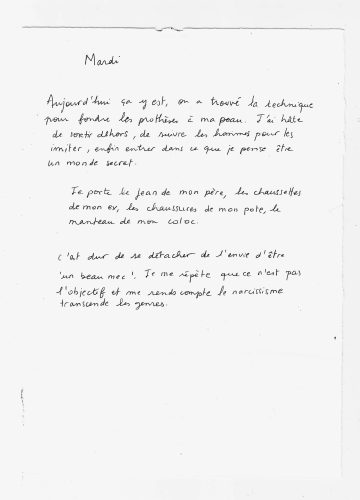 Mardi
Aujourd'hui ça y est, on a trouvé la technique
pour fondre les prothèses à ma peau. J'ai hâte
de sortir dehors, de suivre les hommes pour les
imiter, enfin entrer dans ce que je pense être
un monde secret.
Je porte le jean de mon père, les chaussettes
de mon ex, les chaussures de mon pote, le
manteau de mon coloc.
c'est dur de se détacher de l'envie d'être
'un beau mec'. Je me répète que ce n'est pas
l'objectif et me rends compte le narcissisme
transcende les genres.